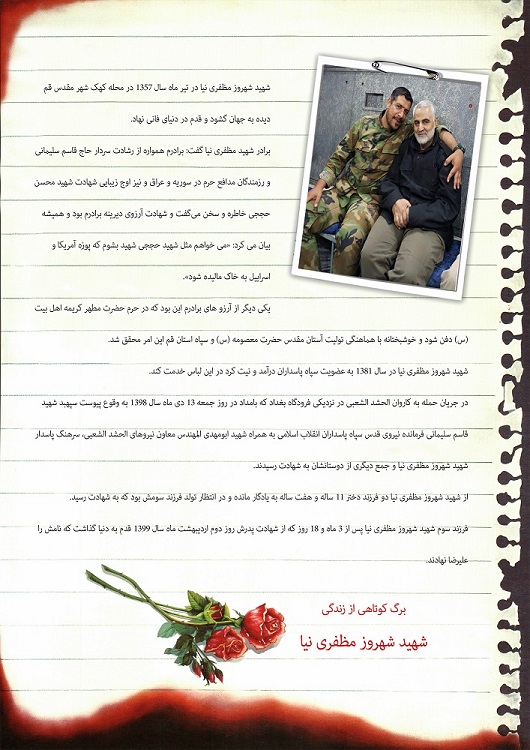 شهید شهروز مظفری نیا در تیر ماه سال 1357 در محله کهک شهر مقدس قم
دیده به جهان گشود و قدم در دنیای فانی نهاد.
برادر شهید مظفری نیا گفت: برادرم همواره از رشادت سردار حاج قاسم سلیمانی
و رزمندگان مدافع حرم در سوریه و عراق و نیز اوج زیبایی شهادت شهید محسن
حججی خاطره و سخن می‌گفت و شهادت آرزوی دیرینه برادرم بود و همیشه
بیان می کرد: «می خواهم مثل شهید حججی شهید بشوم که پوزه آمریکا و
اسراییل به خاک مالیده شود».
یکی دیگر از آرزو های برادرم این بود که در حرم حضرت مطهر کریمه اهل بیت
(س) دفن شود و خوشبختانه با هماهنگی تولیت آستان مقدس حضرت معصومه (س) و سپاه استان قم این امر محقق شد.
شهید شهروز مظفری نیا در سال 1381 به عضویت سپاه پاسداران درآمد و نیت کرد در این لباس خدمت کند.
در جریان حمله به کاروان الحشد الشعبی در نزدیکی فرودگاه بغداد که بامداد در روز جمعه 13 دی ماه سال 1398 به وقوع پیوست سپهبد شهید
قاسم سلیمانی فرمانده نیروی قدس سپاه پاسداران انقلاب اسلامی به همراه شهید ابومهدی المهندس معاون نیروهای الحشد الشعبی، سرهنگ پاسدار
شهید شهروز مظفری نیا و جمع دیگری از دوستانشان به شهادت رسیدند.
از شهید شهروز مظفری نیا دو فرزند دختر 11 ساله و هفت ساله به یادگار مانده و در انتظار تولد فرزند سومش بود که به شهادت رسید.
فرزند سوم شهید شهروز مظفری نیا پس از 3 ماه و 18 روز که از شهادت پدرش روز دوم اردیبهشت ماه سال 1399 قدم به دنیا گذاشت که نامش را
علیرضا نهادند.
برگ کوتاهی از زندگی
شهید شهروز مظفری نیا